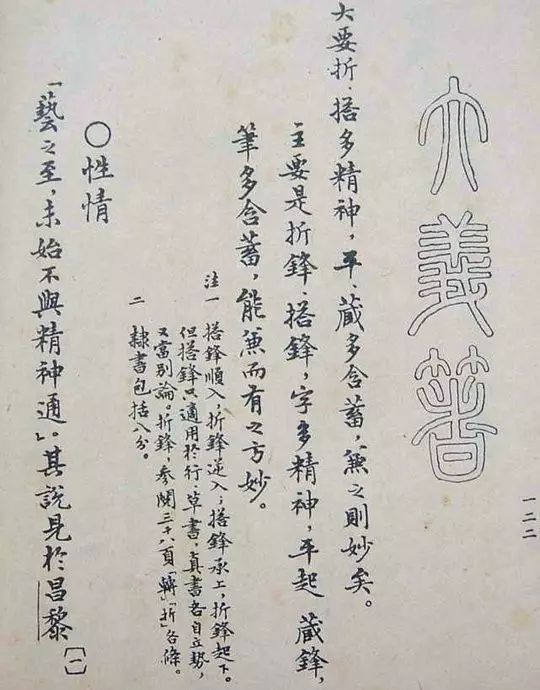 一二二
大義箸
大要折、搭多精神，平、藏多含蓄，兼之則妙矣。
主要是折鋒、搭鋒，字多精神，平起 藏鋒，
筆多含蓄，能兼而有之方妙。
注一 搭鋒順入，折鋒逆入；搭鋒承上，折鋒起下。
但搭鋒只適用於行、草書，真書各自立勢，
又當別論。折鋒參閱頁「轉」「折」各條。
二 隸書包括八分。
○性情
「藝之至，未始不與精神通」。其說見於昌黎〔一〕